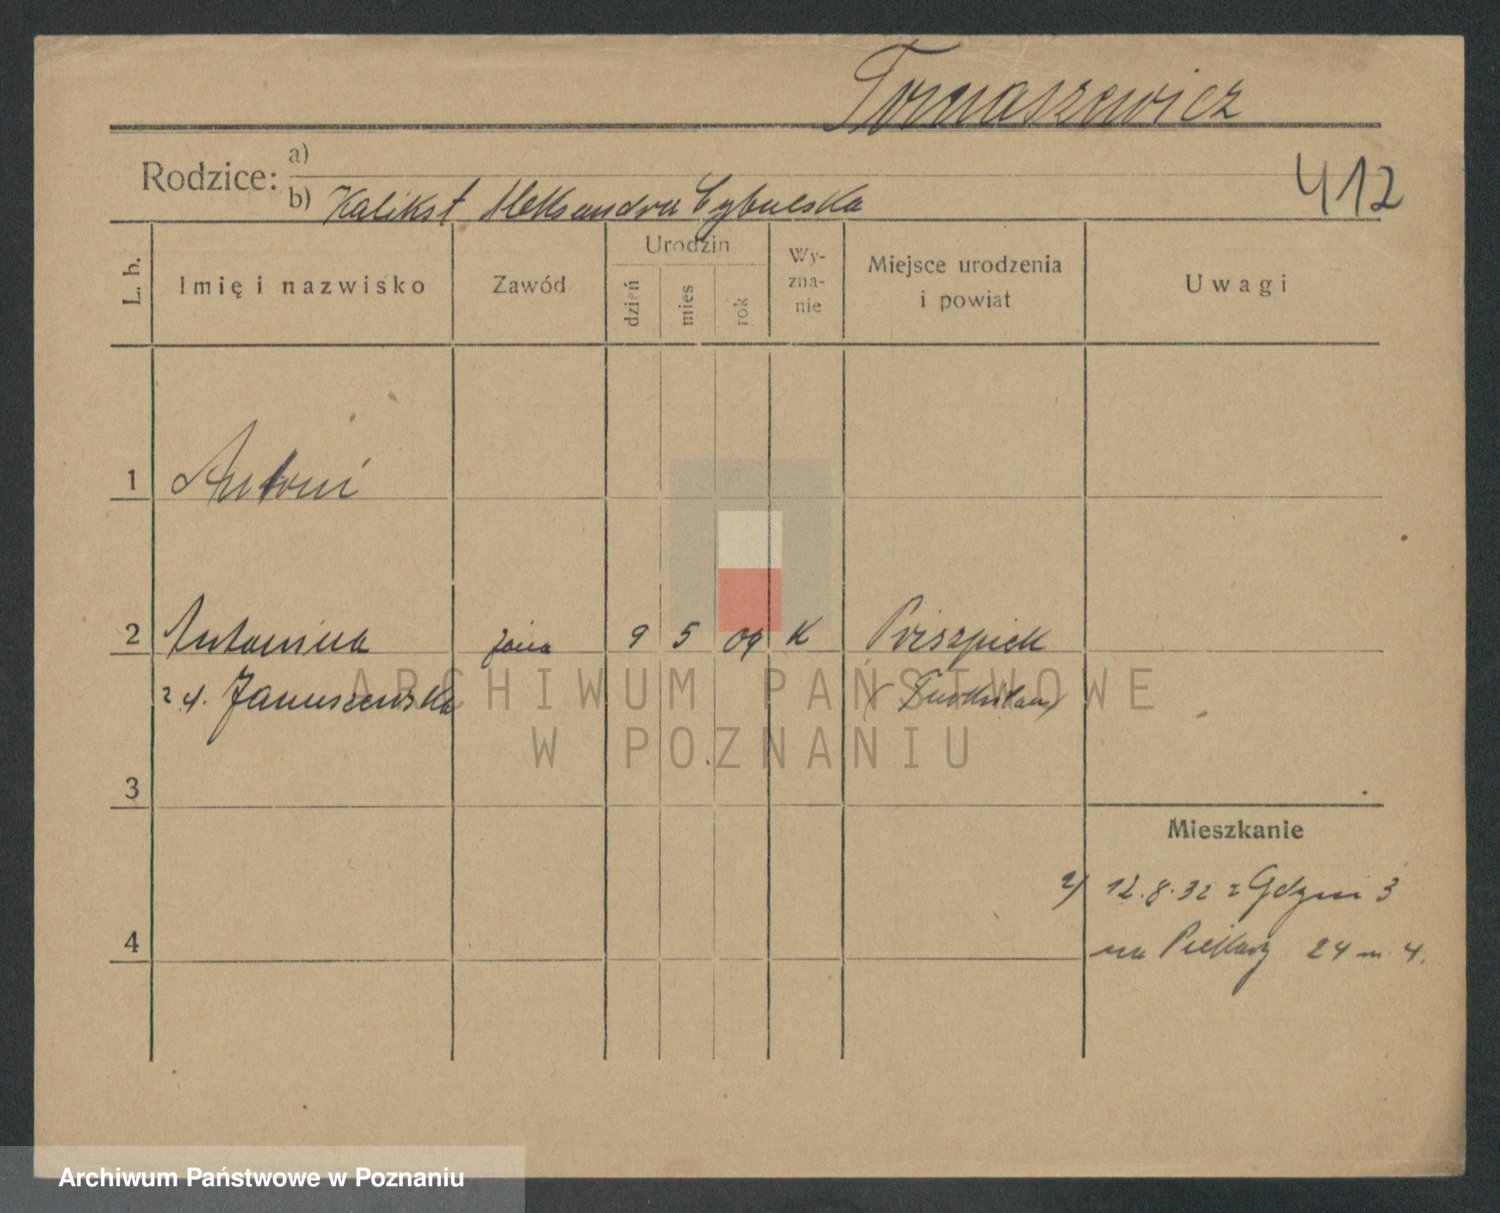 Tomaszewicz
Rodzice:
a)
b) Kalikst Aleksandra Cybulska
412
L. b.
Imię i nazwisko
Zawód
Urodzin
dzień
mies
rok
Wy-
zna-
nie
Miejsce urodzenia
i powiat
Uwagi
1 Antoni
2 Antonina żona 9 5 09 K
z d. Januszewska
3
4
Mieszkanie
2/ 12.8.32 z Gdyni 3
na Piekary 24 m. 4.
ARCHIWUM PAŃSTWOWE
W POZNANIU
Archiwum Państwowe w Poznaniu